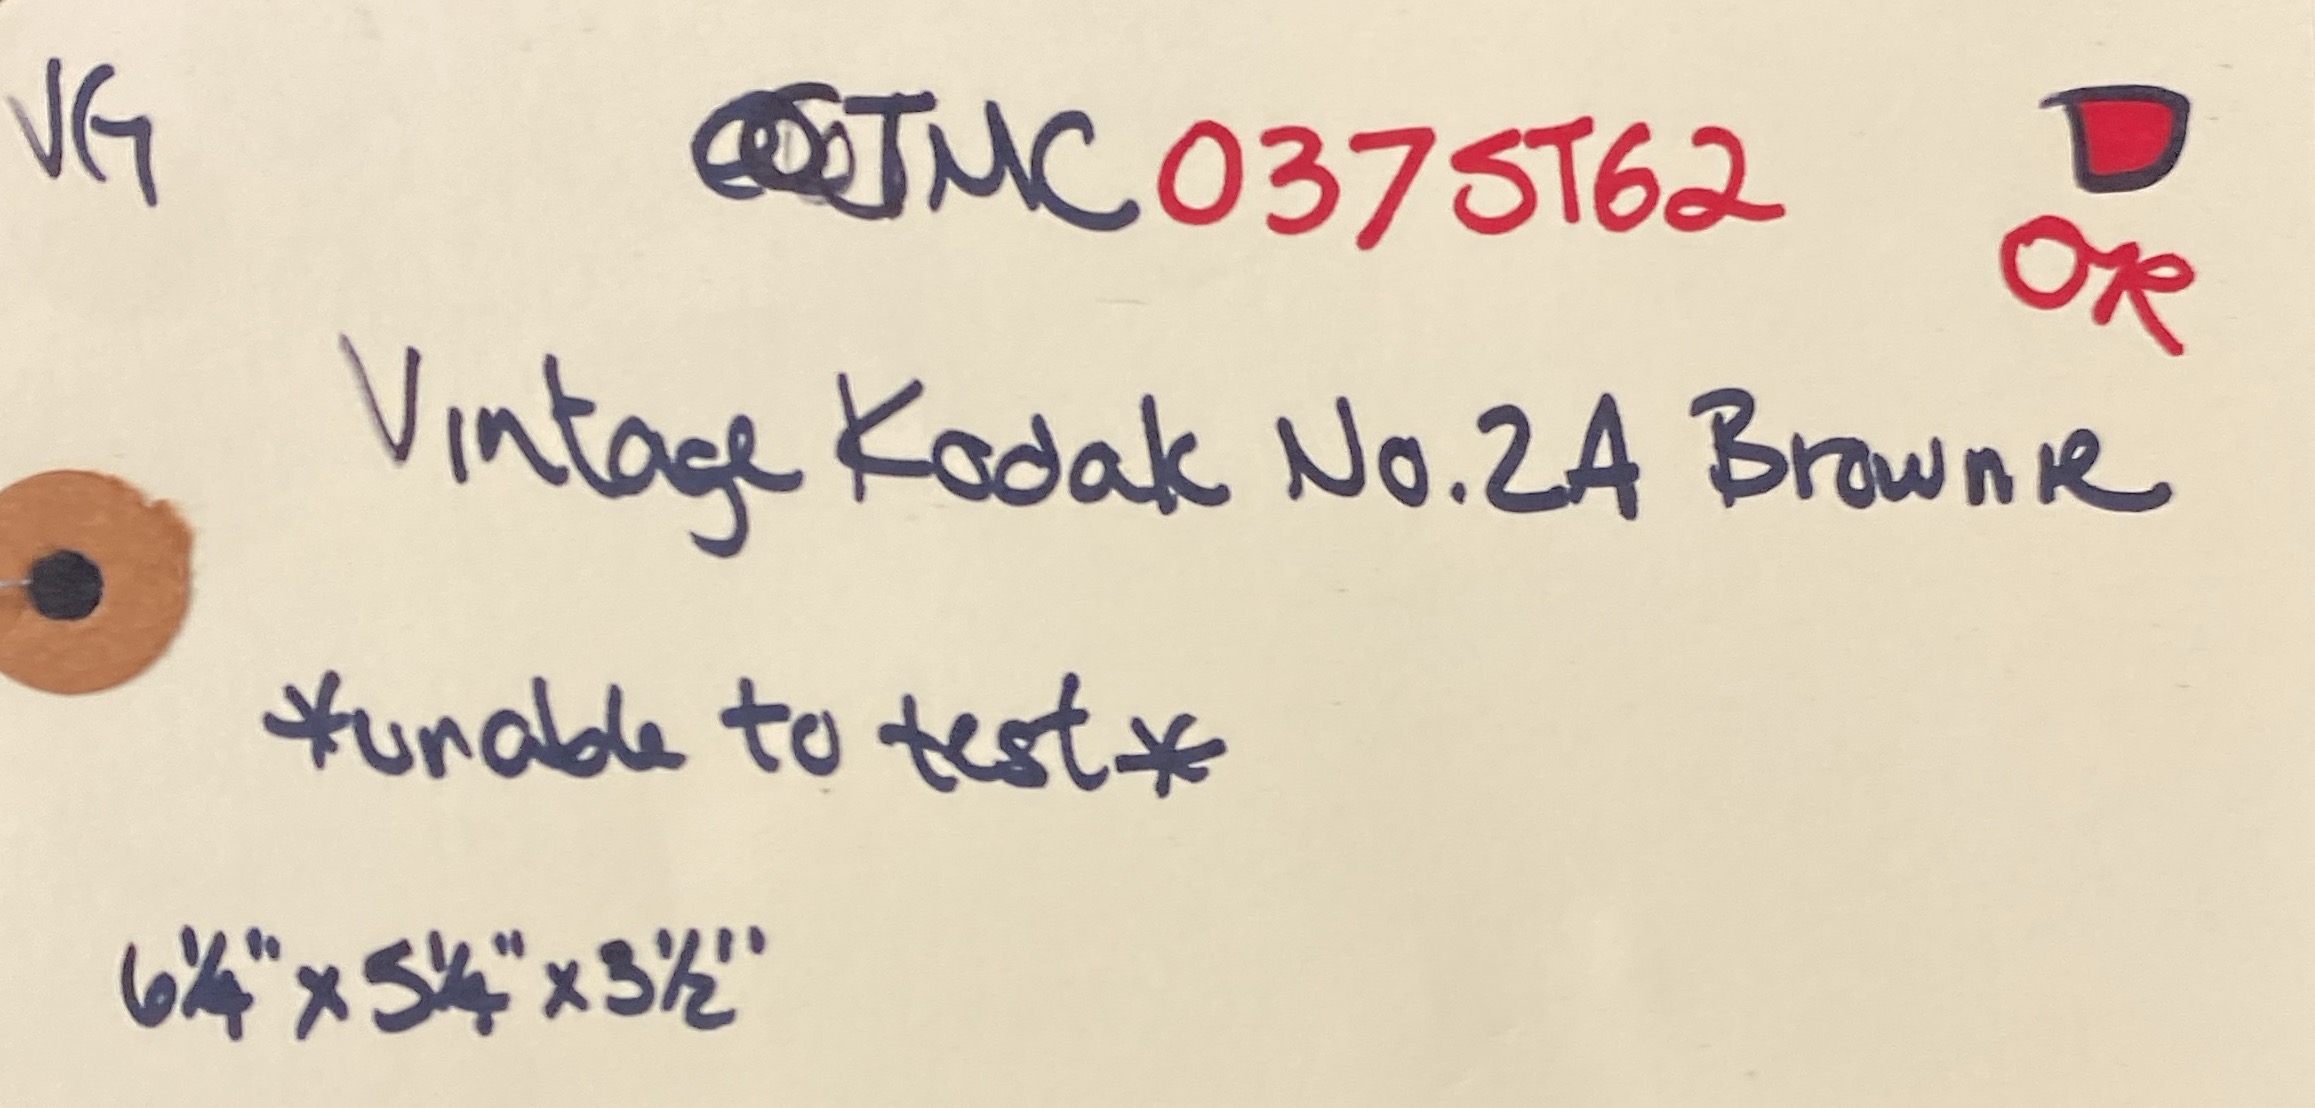 VG JMC0375T62 D
OR
Vintage Kodak No.2A Brownie
*unable to test*
6¼" x 5¼" x 3½"